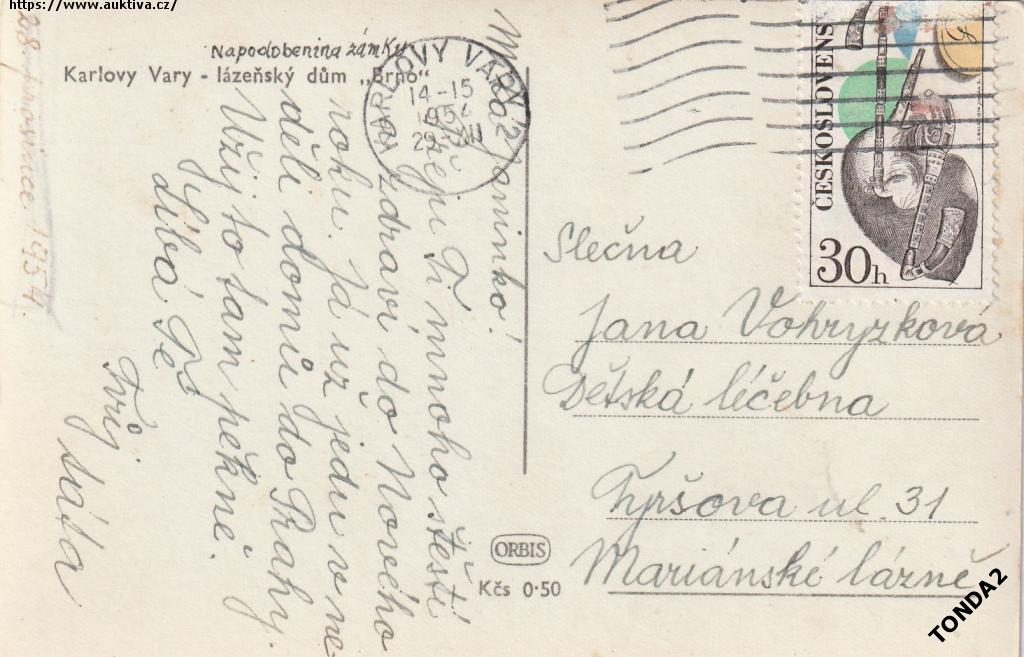 https://www.auktiva.cz/
Napodobenina zámku
Karlovy Vary - lázeňský dům „Brno"
KARLOVY VARY 2
14-15
195
29. XII
ČESKOSLOVENS
30h
Milá Janinko!
Přeju Ti mnoho štěstí
a zdraví do Nového
roku. Já už jedu v ne
děli domů do Prahy.
Užij to tam pěkně.
Líbá Tě
Tvůj
táta
1954.
Slečna
Jana Vohryzková
Dětská léčebna
Tyršova ul. 31
Mariánské lázně
ORBIS
Kčs 0·50
TONDA2